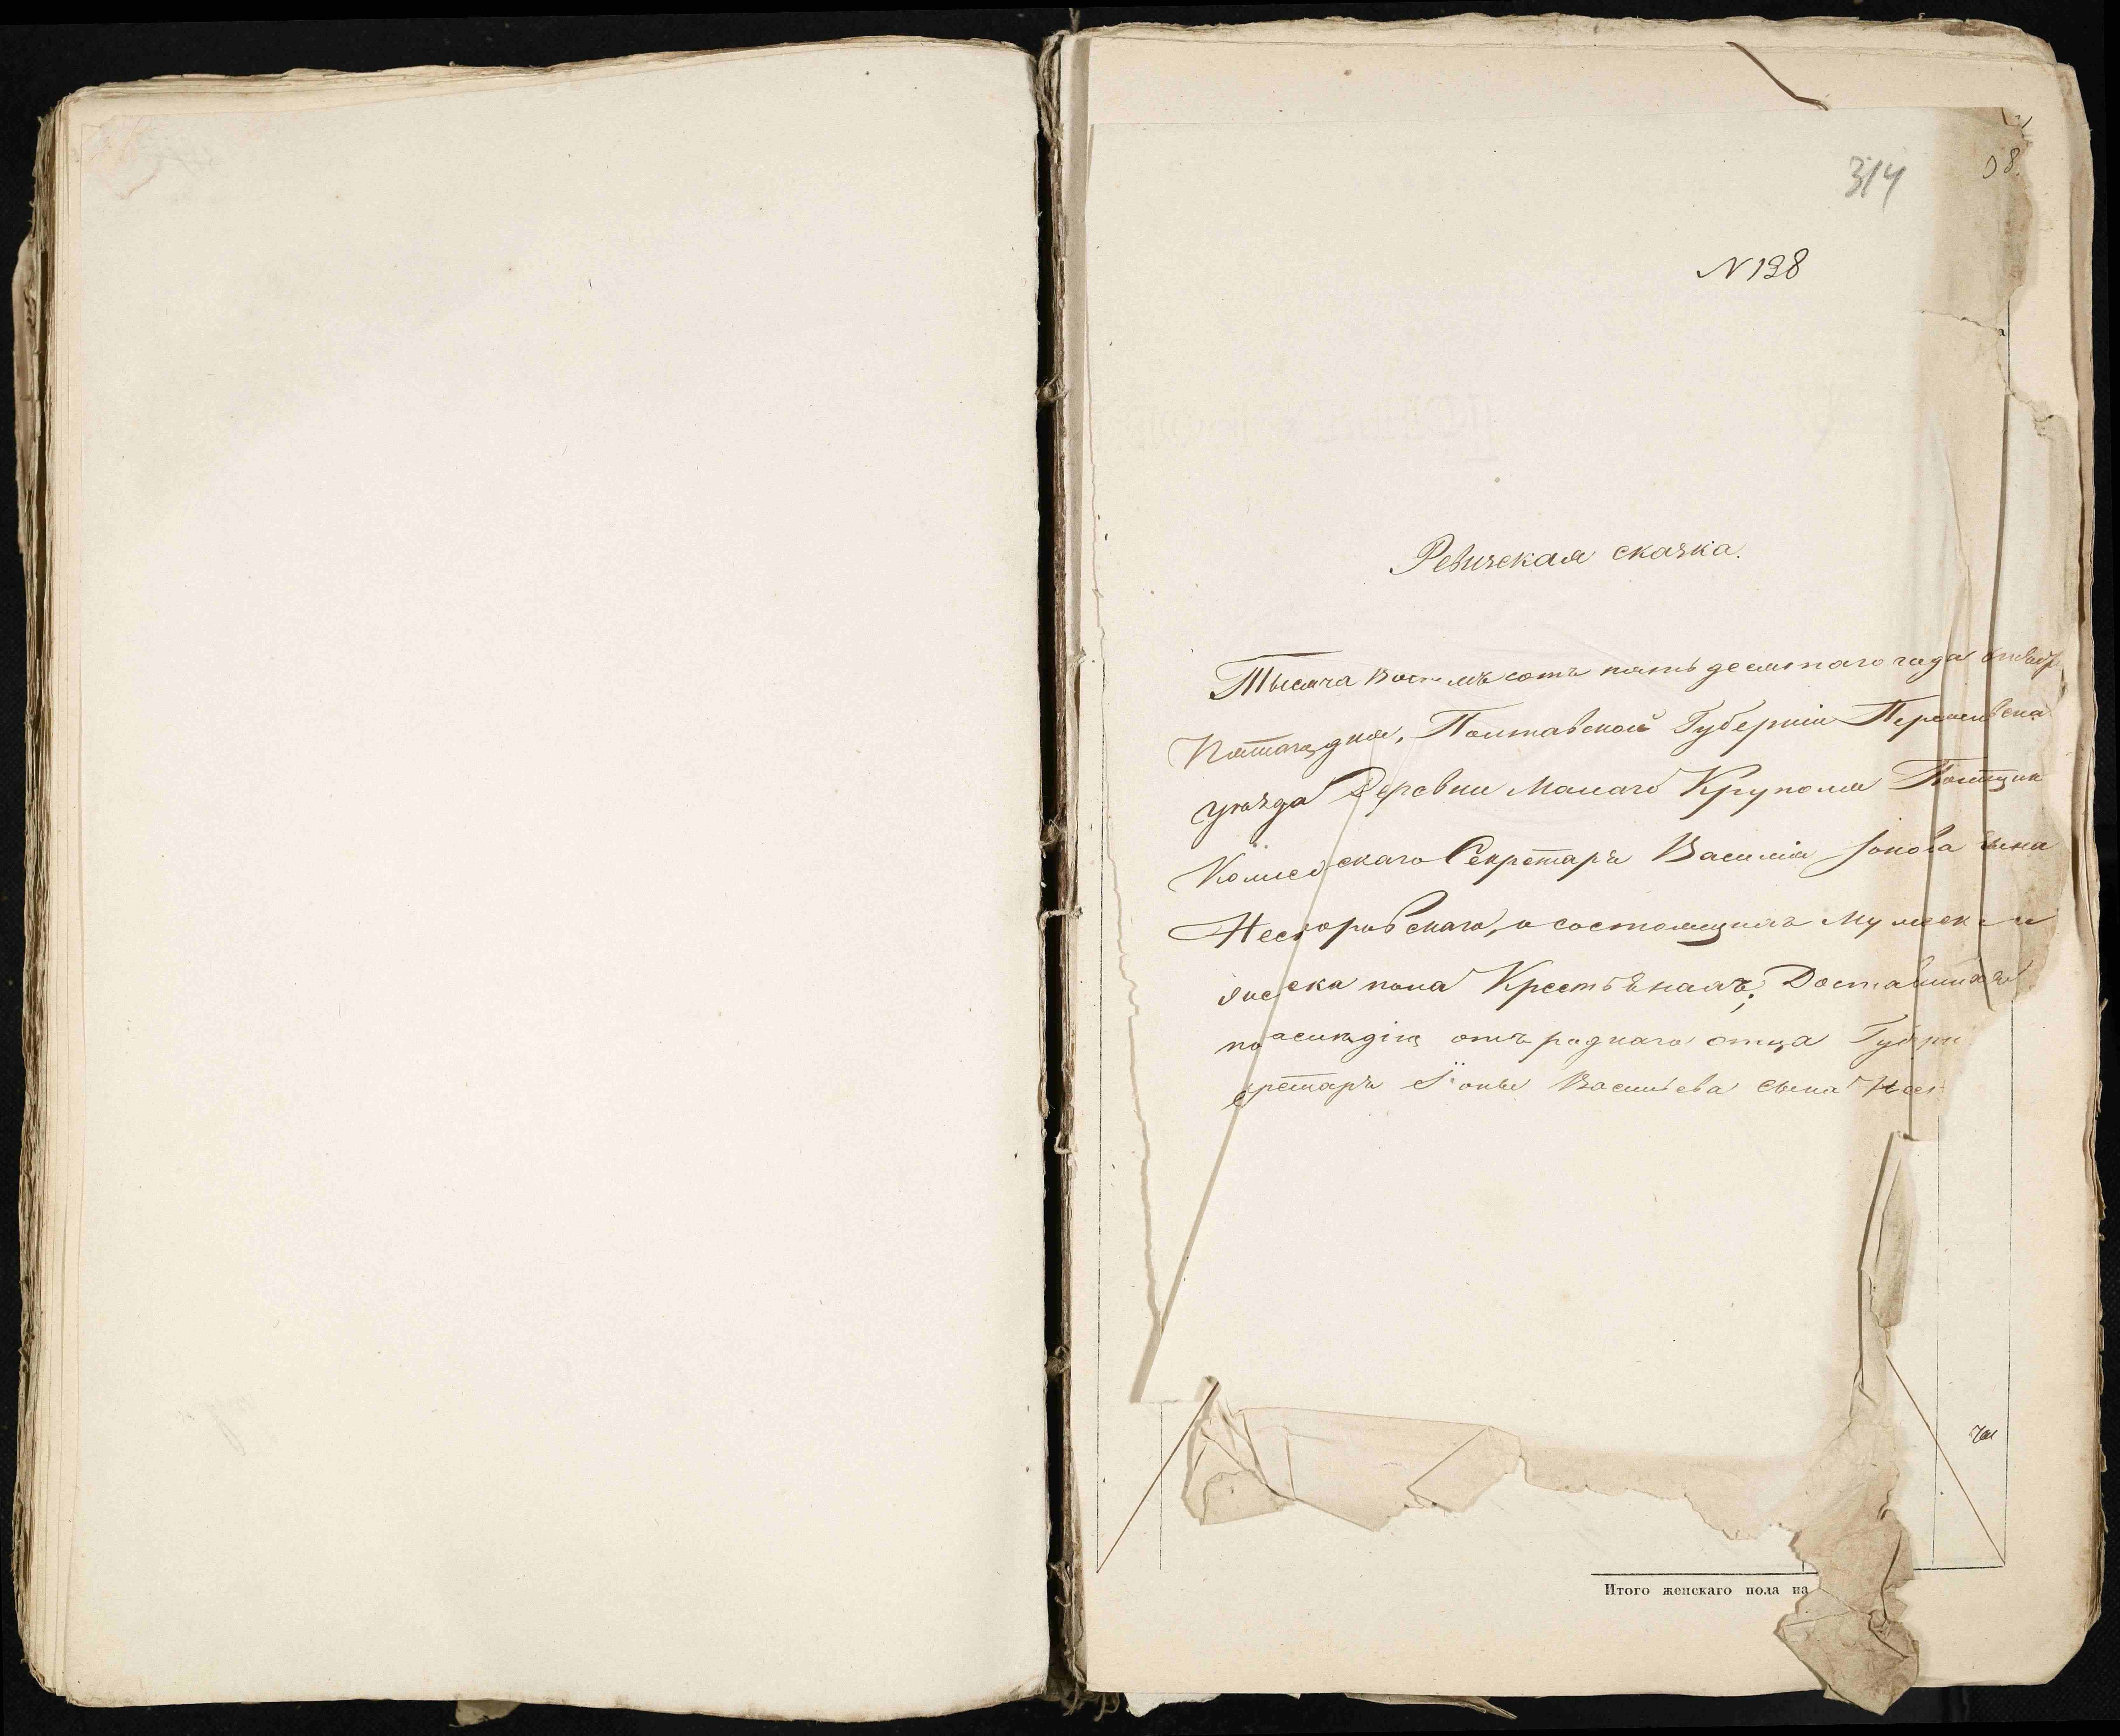 314
38.
N 138
Ревизская сказка.
Тысяча восемь сотъ пятьдесятаго года октябр
Пятаго дня, Полтавской Губерніи Переяславска
уѣзда Деревни Малаго Круполя Помѣщик
Колежскаго Секретаря Василія Іонова сына
Нескоровскаго, о состоящихъ мужеск и
женска пола Крестьянахъ; Доставшихся
по наслѣдію отъ роднаго отца Губерн
кретаря Іоны Васильева сына Неск
Итого женскаго пола на